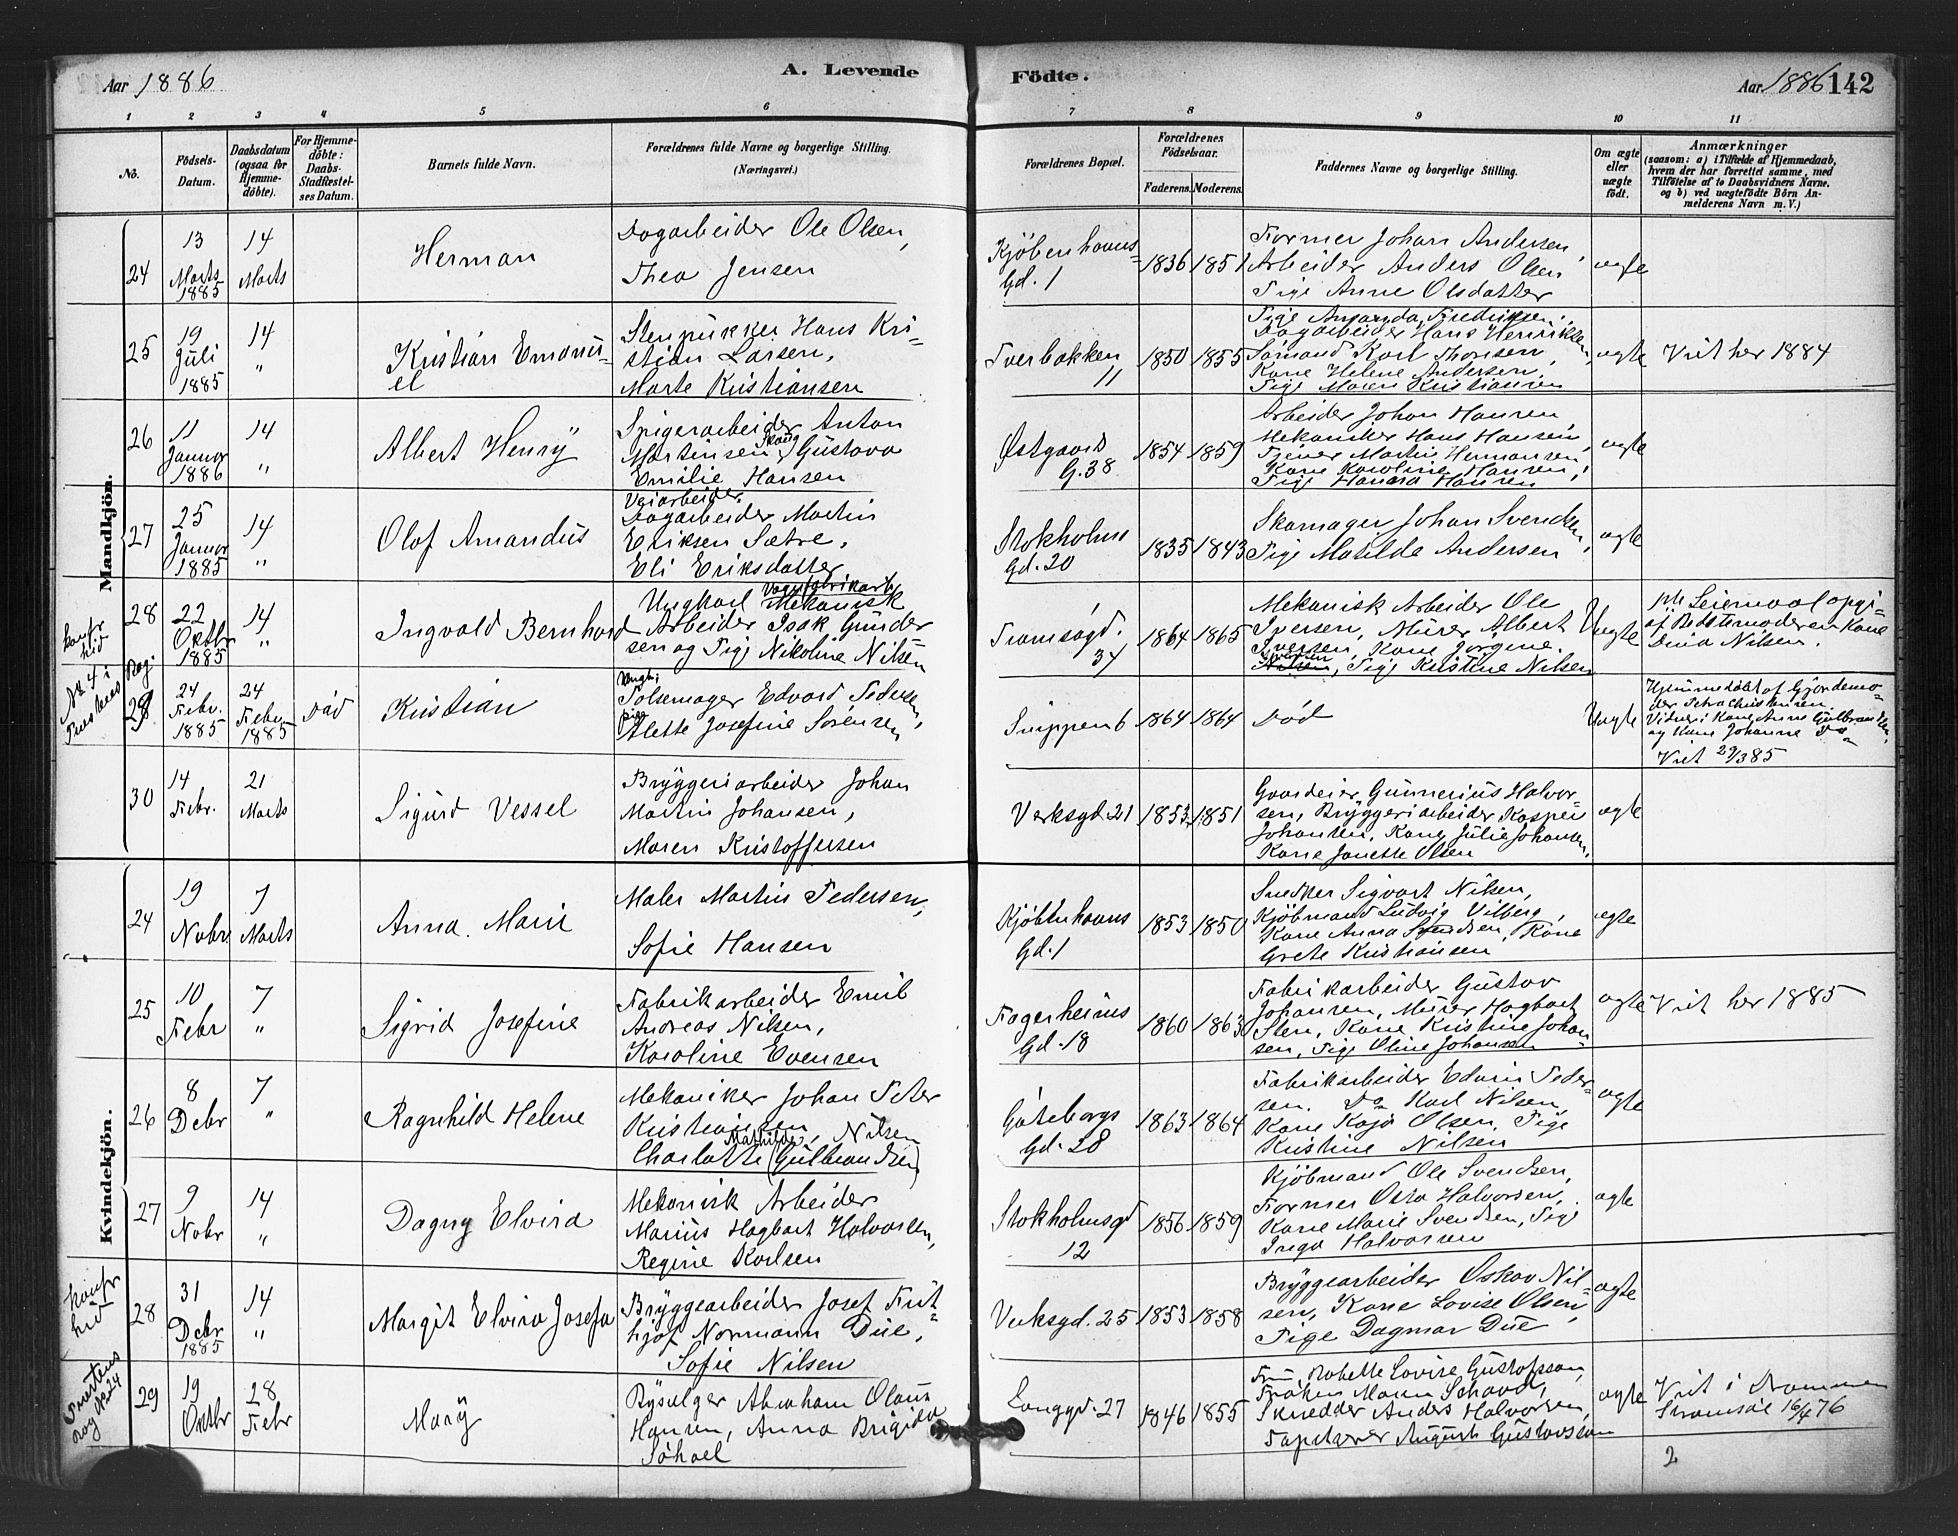 Aar 1886
A. Levende
Födte.
Aar 1886 142
1 2 3 4 5 6 7 8 9 10 11
No.
Fødsels-
Datum.
Daabsdatum
(ogsaa for
Hjemme-
døbte).
For Hjemme-
døbte:
Daabs-
Stadfæstel-
ses Datum.
Barnets fulde Navn.
Forældrenes fulde Navne og borgerlige Stilling.
(Næringsvei.)
Forældrenes Bopæl.
Forældrenes
Fødselsaar.
Faderens. Moderens.
Faddernes Navne og borgerlige Stilling.
Om ægte
eller
uægte
født.
Anmærkninger
(saasom: a) i Tilfælde af Hjemmedaab,
hvem der har forrettet samme, med
Tilføielse af to Daabsvidners Navne.
og b) ved uægtefødte Börn An-
melderens Navn m. V.)
Mandkjön.
24
13
Marts
1885
14
Marts
Herman
Dagarbeider Ole Olsen,
Thea Jensen
Kjøbenhavns-
Gd. 1
1836 1851
Former Johan Andersen,
Arbeider Anders Olsen
Pige Anne Olsdatter
ægte
25
19
Juli
1885
14
"
Kristian Emanu-
el
Stenpukker Hans Kri-
stian Larsen,
Marte Kristiansen
Tverbakken
11
1850 1855
Pige Amanda Fredriksen,
Dagarbeider Hans Henriksen,
Sömand Karl Thorsen,
Kone Helene Andersen,
Pige Maren Kristiansen
ægte
Viet her 1884
26
11
Januar
1886
14
"
Albert Henry
Spigerarbeider Anton
Martinsen Skaug, Gustava
Emilie Hansen
Østgaards
G. 38
1854 1859
Arbeider Johan Hansen
Mekaniker Hans Hansen,
Tjener Martin Hermansen
Kone Karoline Hansen,
Pige Hanna Hansen
ægte
27
25
Januar
1885
14
"
Olaf Amandus
Veiarbeider
Dagarbeider Martin
Eriksen Sætre,
Eli Eriksdatter
Stokholms
Gd. 20
1835 1843
Skomager Johan Svendsen,
Pige Matilde Andersen
ægte
konfr
hid
28
22
Oktbr
1885
14
"
Ingvald Bernhard
Ungkarl Mekanisk
Arbeider Isak Gunder
sen og Pige Nikoline Nilsen
Tromsøgd.
34
1864 1865
Mekanisk Arbeider Ole
Iversen, Murer Albert
Iversen, Kone Jörgine
Iversen, Pige Kristine Nilsen
Uægte
af Bedstemoderen Kone
Dina Nilsen.
29
24
Febr.
1885
24
Febr.
1885
Død
Kristian
Ungk:
Pölsemager Edvard Pedersen,
Pige
Alette Josefine Sörensen
Snippen 6
1864 1864
Död
Uægte
Hjemmedöbt af Gjordemo-
der Petra Christensen.
Vidner: Kone Anne Gulbrandsen,
og Kone Johanne Do
Viet 29/3 85
30
14
Febr.
21
Marts
Sigurd Vessel
Bryggeriarbeider Johan
Martin Johansen,
Maren Kristoffersen
Verksgd. 21
1853 1851
Gaardeier Gunnerius Halvor-
sen, Bryggeriarbeider Kasper
Johansen, Kone Julie Johansen,
Kone Janette Olsen
ægte
Kvindekjön.
24
19
Nobr
7
Marts
Anna Marie
Maler Martin Pedersen,
Sofie Hansen
Kjøbenhavns
Gd. 1
1853 1850
Snedker Sigvart Nilsen,
Kjøbmand Ludvig Vilberg,
Kone Anna Svendsen, Kone
Grete Kristiansen
ægte
25
10
Febr
7
"
Sigrid Josefine
Fabrikarbeider Emil
Andreas Nilsen,
Karoline Evensen
Fagerheims
Gd. 18
1860 1863
Fabrikarbeider Gustav
Johansen, Murer Hagbart
Sten, Kone Kristine Johan-
sen, Pige Oline Johansen
ægte
Viet her 1885
26
8
Debr
7
"
Ragnhild Helene
Mekaniker Johan Peter
Kristiansen, Nilsen
Mathilde
Charlotte (Gulbrandsen)
Göteborgs
Gd. 28
1863 1864
Fabrikarbeider Edvin Peder-
sen. Do Karl Nilsen
Kone Kaja Olsen, Pige
Kristine Nilsen
ægte
27
9
Nobr
14
"
Dagny Elvira
Mekanisk Arbeider
Marius Hagbart Halvorsen,
Regine Karlsen
Stokholmsgd
12
1856 1859
Kjøbmand Ole Svendsen,
Former Oskar Halvorsen,
Kone Marie Svendsen, Pige
Inga Halvorsen
ægte
konfr
hid
28
31
Debr
1885
14
"
Margit Elvira Josefa
Bryggearbeider Josef Frit-
hjof Normann Due,
Sofie Nilsen
Verksgd. 25
1853 1858
Bryggearbeider Oskar Nil-
sen, Kone Lovise Olsen,
Pige Dagmar Due
ægte
29
19
Oktbr
28
Febr
Mary
Bysælger Abraham Olaus
Hansen, Anna Brigida
Langgd. 27
1846 1855
Fru Babette Lovise Gustafsson,
Fröken Maren Schavd,
Skredder Anders Halvorsen,
Tapetserer August Gustavsson
ægte
Viet i Drammen
Strømsöe 16/4 76
2